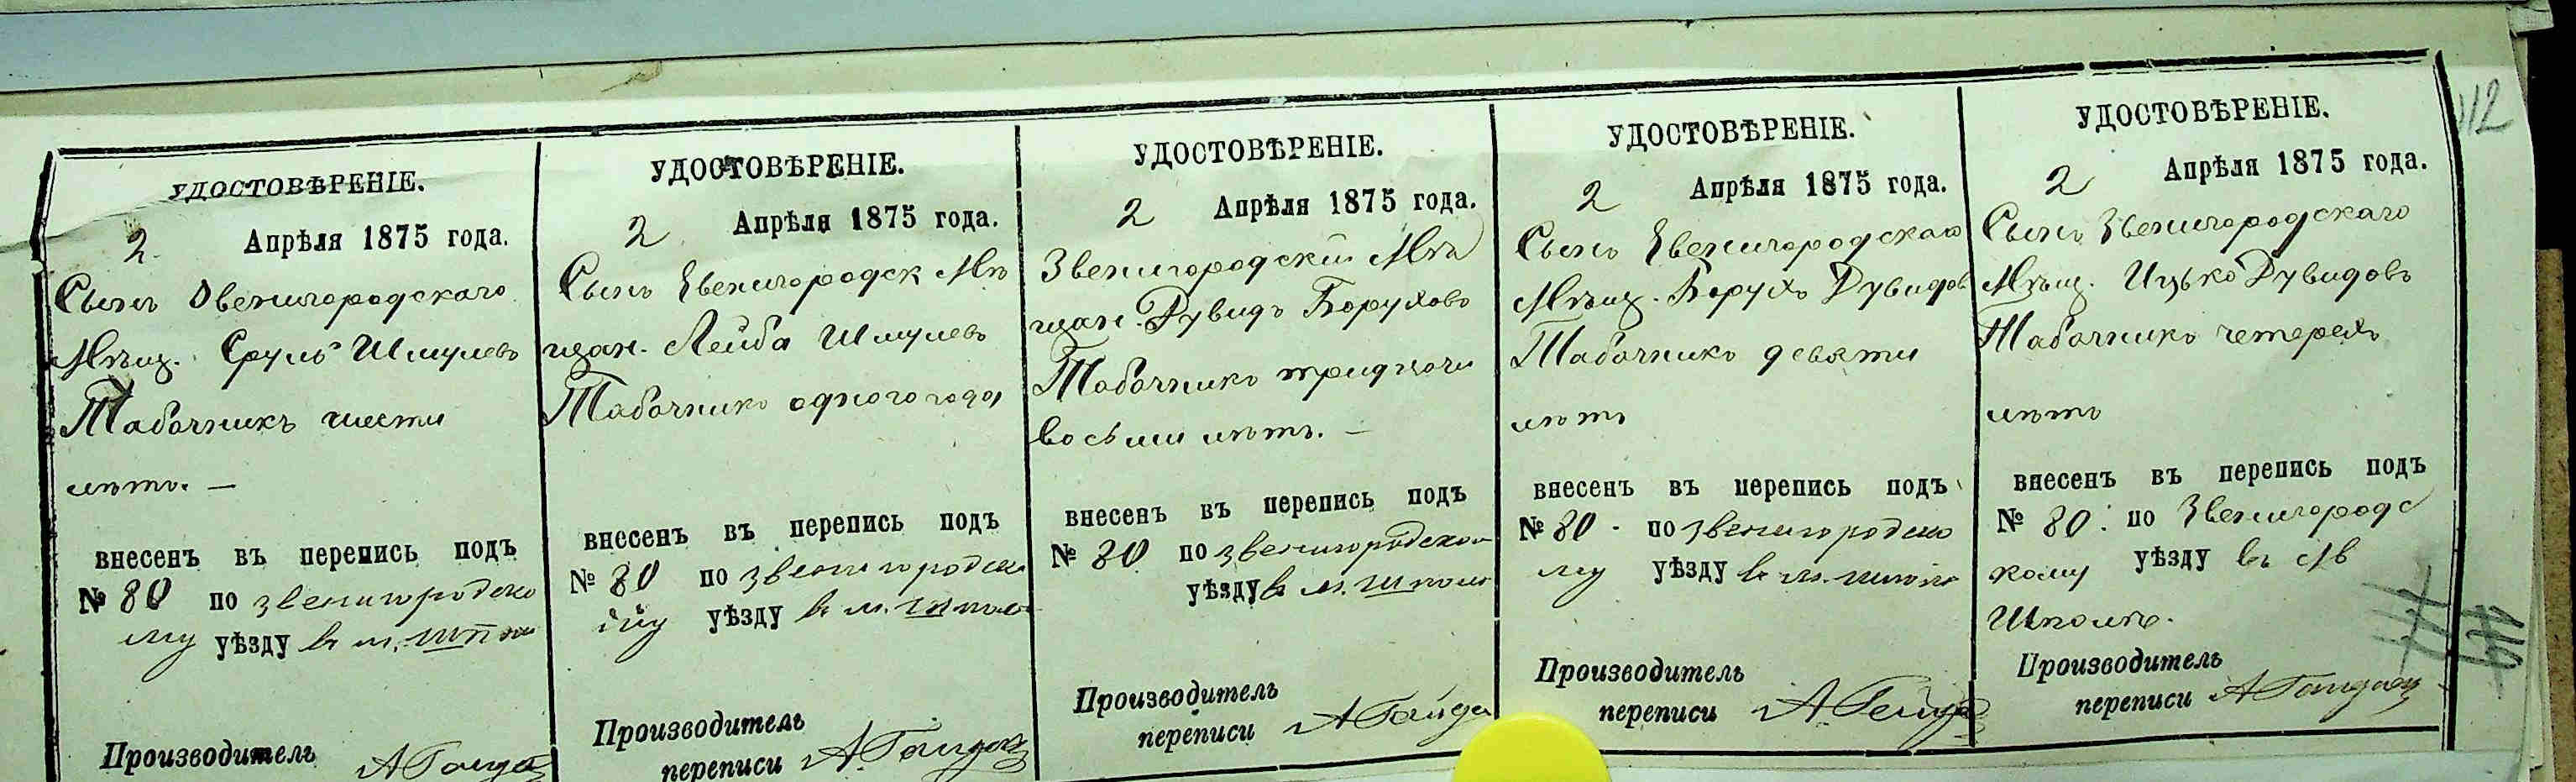 112
УДОСТОВѢРЕНІЕ.
2 Апрѣля 1875 года.
Сынъ Звенигородскаго
Мѣщ. Сруль Шмулевъ
Табачникъ шести
лѣтъ. —
внесенъ въ перепись подъ
№ 80 по звенигородско
му уѣзду в м. Шпол
Производитель
УДОСТОВѢРЕНІЕ.
2 Апрѣля 1875 года.
Сынъ Звенигородск Мѣ
щан. Лейба Шмулевъ
Табачникъ одного года
внесенъ въ перепись подъ
№ 80 по звенигородско
му уѣзду в м. Шпол
Производитель
переписи
УДОСТОВѢРЕНІЕ.
2 Апрѣля 1875 года.
Звенигородскій Мѣ
щан. Дувидъ Боруховъ
Табачникъ тридцати
восьми лѣтъ. —
внесенъ въ перепись подъ
№ 80 по звенигородском
уѣзду в м. Шполѣ
Производитель
переписи А Гайда
УДОСТОВѢРЕНІЕ.
2 Апрѣля 1875 года.
Сынъ Звенигородскаго
Мѣщ. Борухъ Дувидов
Табачникъ девяти
лѣтъ
внесенъ въ перепись подъ
№ 80 · по звенигородско
му уѣзду в м. Шполѣ
Производитель
переписи
УДОСТОВѢРЕНІЕ.
2 Апрѣля 1875 года.
Сынъ Звенигородскаго
Мѣщ. Ицько Дувидовъ
Табачникъ четерехъ
лѣтъ
внесенъ въ перепись подъ
№ 80. по Звенигородс
кому уѣзду въ М
Шполѣ.
Производитель
переписи